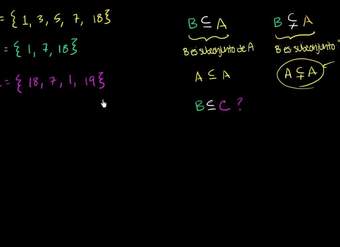 = { 1, 3, 5, 7, 18 }
= { 1, 7, 18 }
= { 18, 7, 1, 19 }
B ⊆ A
B es subconjunto de A
A ⊆ A
B ⊆ C ?
B ⊊ A
B es subconjunto
A ⊊ A